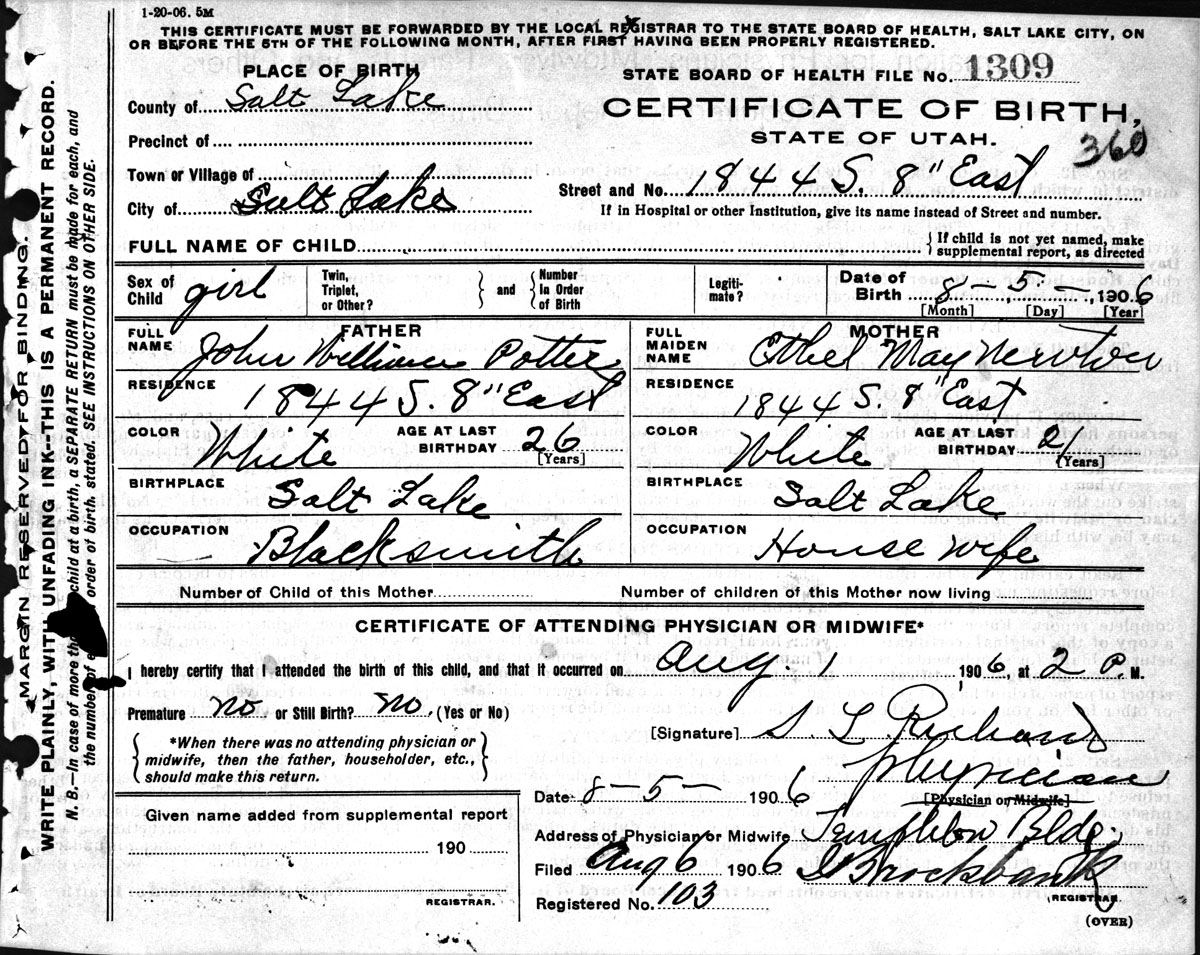 1-20-06. 5M
THIS CERTIFICATE MUST BE FORWARDED BY THE LOCAL REGISTRAR TO THE STATE BOARD OF HEALTH, SALT LAKE CITY, ON
OR BEFORE THE 5TH OF THE FOLLOWING MONTH, AFTER FIRST HAVING BEEN PROPERLY REGISTERED.
PLACE OF BIRTH
STATE BOARD OF HEALTH FILE No. 1309
County of Salt Lake
CERTIFICATE OF BIRTH,
Precinct of
STATE OF UTAH.
360
Town or Village of
Street and No. 1844 S. 8" East
City of Salt Lake
If in Hospital or other Institution, give its name instead of Street and number.
FULL NAME OF CHILD
{ If child is not yet named, make
supplemental report, as directed
Sex of Child girl
Twin, Triplet, or Other?
} and {
Number In Order of Birth
Legiti-mate?
Date of Birth 8-5-, 1906
[Month] [Day] [Year]
FATHER
FULL NAME John William Potter
RESIDENCE
1844 S. 8" East
COLOR White
AGE AT LAST BIRTHDAY 26
[Years]
BIRTHPLACE
Salt Lake
OCCUPATION
Blacksmith
MOTHER
FULL MAIDEN NAME Ethel May Newton
RESIDENCE
1844 S. 8" East
COLOR White
AGE AT LAST BIRTHDAY 21
(Years)
BIRTHPLACE
Salt Lake
OCCUPATION
House wife
Number of Child of this Mother
Number of children of this Mother now living
CERTIFICATE OF ATTENDING PHYSICIAN OR MIDWIFE*
I hereby certify that I attended the birth of this child, and that it occurred on Aug 1 1906, at 2 P. M.
Premature no or Still Birth? no, (Yes or No)
{ *When there was no attending physician or
midwife, then the father, householder, etc.,
should make this return. }
[Signature] S. L. Richards
Physician
[Physician or Midwife]
Date 8-5- 1906
Address of Physician or Midwife Templeton Bldg.
Filed Aug 6 1906 Brockbank
Registered No. 103
REGISTRAR.
(OVER)
Given name added from supplemental report
190
REGISTRAR.
MARGIN RESERVED FOR BINDING.
WRITE PLAINLY, WITH UNFADING INK--THIS IS A PERMANENT RECORD.
N. B.—In case of more than child at a birth, a SEPARATE RETURN must be made for each, and
the number of order of birth, stated. SEE INSTRUCTIONS ON OTHER SIDE.